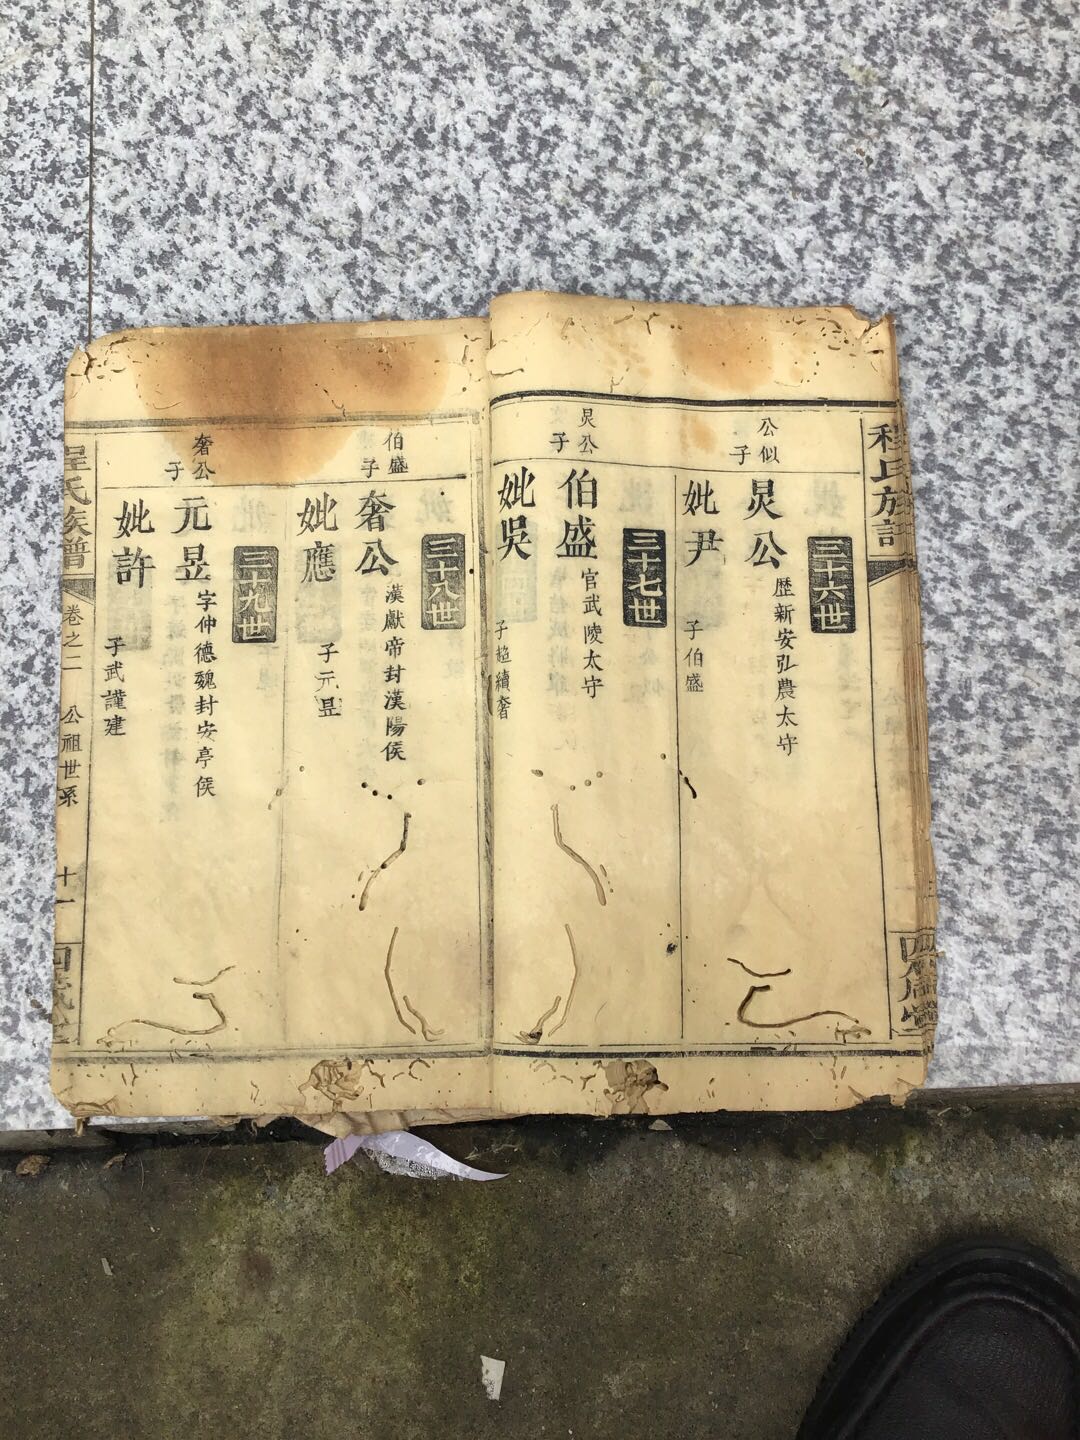 程氏族譜
三十六世
公似
子
炅公
歴新安弘農太守
妣尹
子伯盛
三十七世
炅公
子
伯盛
官武陵太守
妣吳
子超續奢
三十八世
伯盛
子
奢公
漢獻帝封漢陽侯
妣應
子元昱
三十九世
奢公
子
元昱
字仲德魏封安亭侯
妣許
子武謹建
程氏族譜
卷之二
公祖世系
十一